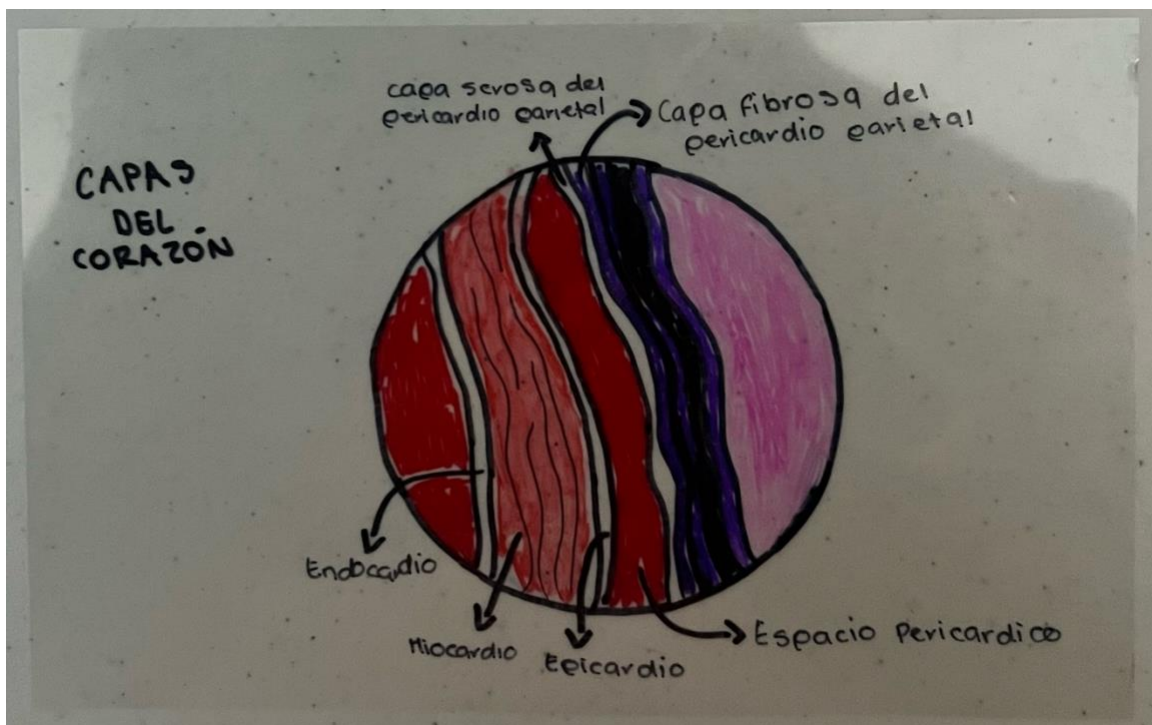 CAPAS
DEL
CORAZÓN
capa serosa del
pericardio parietal
Capa fibrosa del
pericardio parietal
Endocardio
Miocardio
Epicardio
Espacio Pericardico